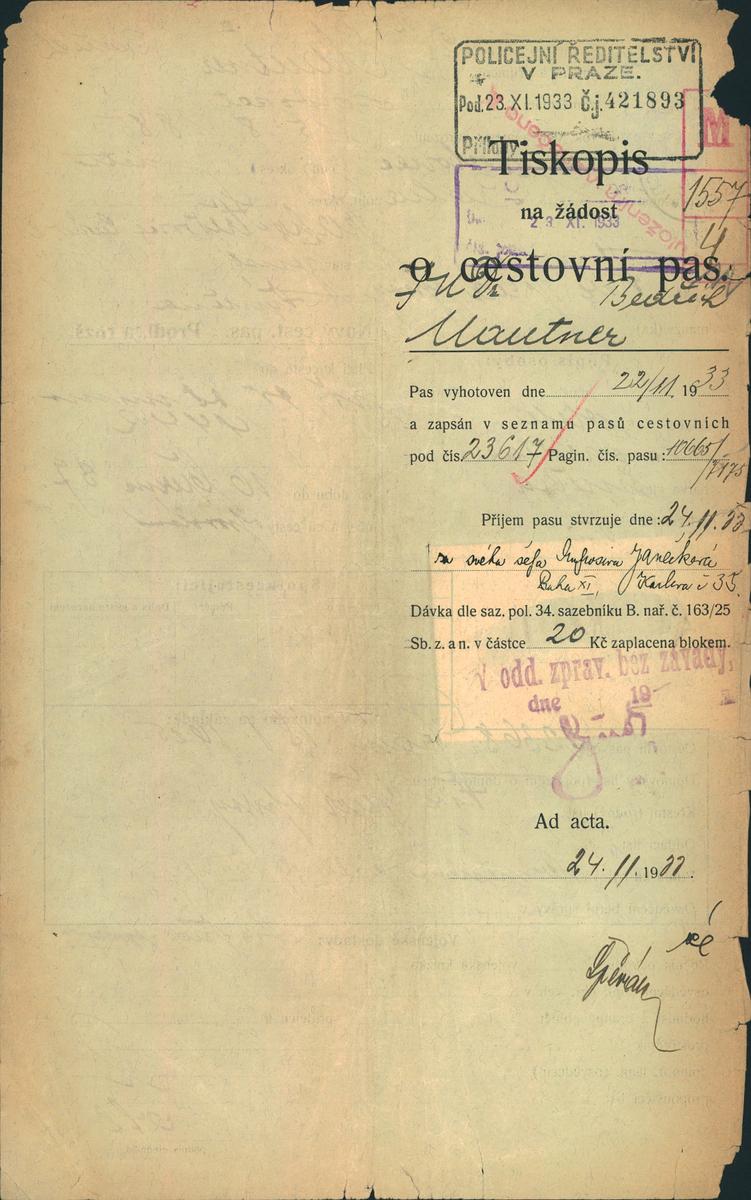 POLICEJNÍ ŘEDITELSTVÍ
V PRAZE.
Pod. 23.XI.1933 Č.j. 421893
Přílohy
M
1557
4
23 XI. 1933
Tiskopis
na žádost
o cestovní pas.
JUDr Bedřich
Mautner
Pas vyhotoven dne 22/11. 1933
a zapsán v seznamu pasů cestovních
pod čís. 23617 Pagin. čís. pasu: 10665/
7175
Příjem pasu stvrzuje dne: 24.11.33
za svého šéfa Eufrosina Janečková
Praha XI, Karlova č 35.
Dávka dle saz. pol. 34. sazebníku B. nař. č. 163/25
Sb. z. a n. v částce 20 Kč zaplacena blokem.
V odd. zprav. bez závady,
dne 19
Ad acta.
24.11.1933.